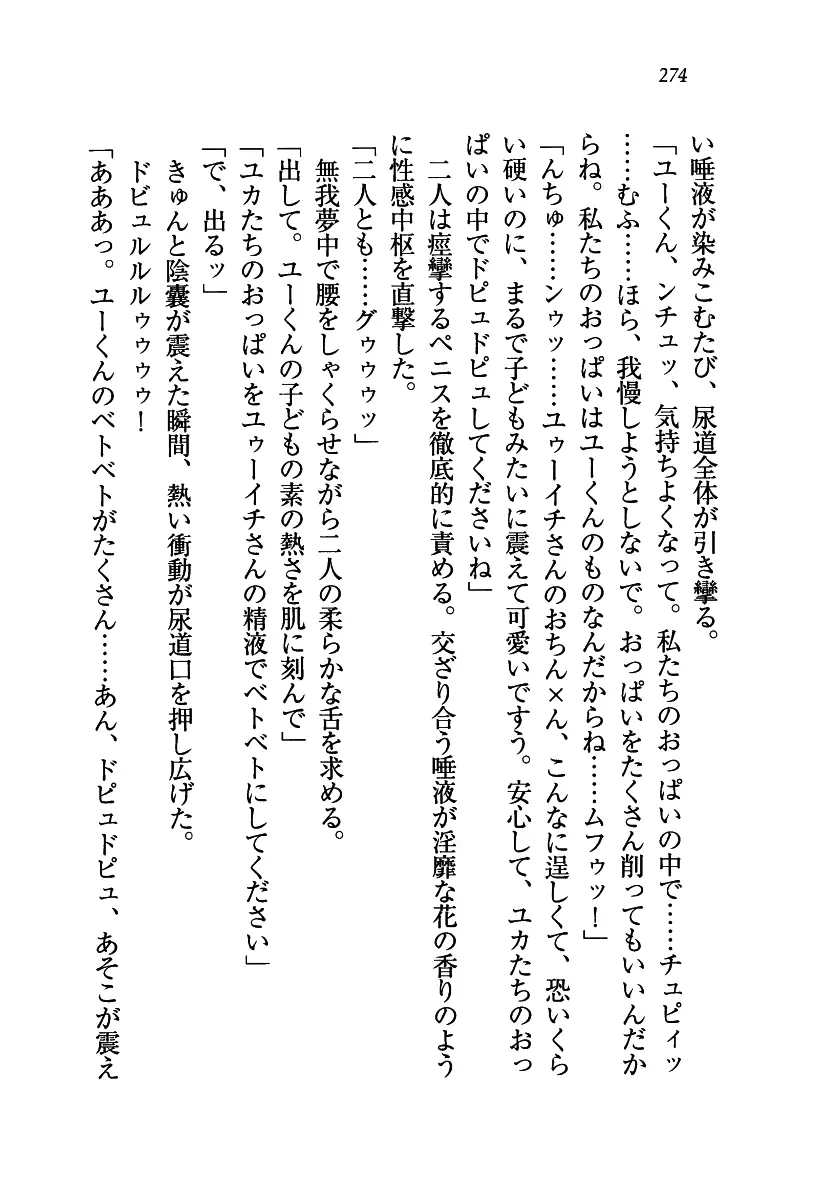 274
い唾液が染みこむたび、尿道全体が引き攣る。
「ユーくん、ンチュッ、気持ちよくなって。私たちのおっぱいの中で……チュピィッ
……むふ……ほら、我慢しようとしないで。おっぱいをたくさん削ってもいいんだか
らね。私たちのおっぱいはユーくんのものなんだからね……ムフゥッ！」
「んちゅ……ンゥッ……ユゥーイチさんのおちん×ん、こんなに逞しくて、恐いくら
い硬いのに、まるで子どもみたいに震えて可愛いですぅ。安心して、ユカたちのおっ
ぱいの中でドピュドピュしてくださいね」
二人は痙攣するペニスを徹底的に責める。交ざり合う唾液が淫靡な花の香りのよう
に性感中枢を直撃した。
「二人とも……グゥゥゥッ」
無我夢中で腰をしゃくらせながら二人の柔らかな舌を求める。
「出して。ユーくんの子どもの素の熱さを肌に刻んで」
「ユカたちのおっぱいをユゥーイチさんの精液でベトベトにしてください」
「で、出るッ」
きゅんと陰嚢が震えた瞬間、熱い衝動が尿道口を押し広げた。
ドビュルルルゥゥゥゥ！
「あああっ。ユーくんのベトベトがたくさん……あん、ドピュドピュ、あそこが震え